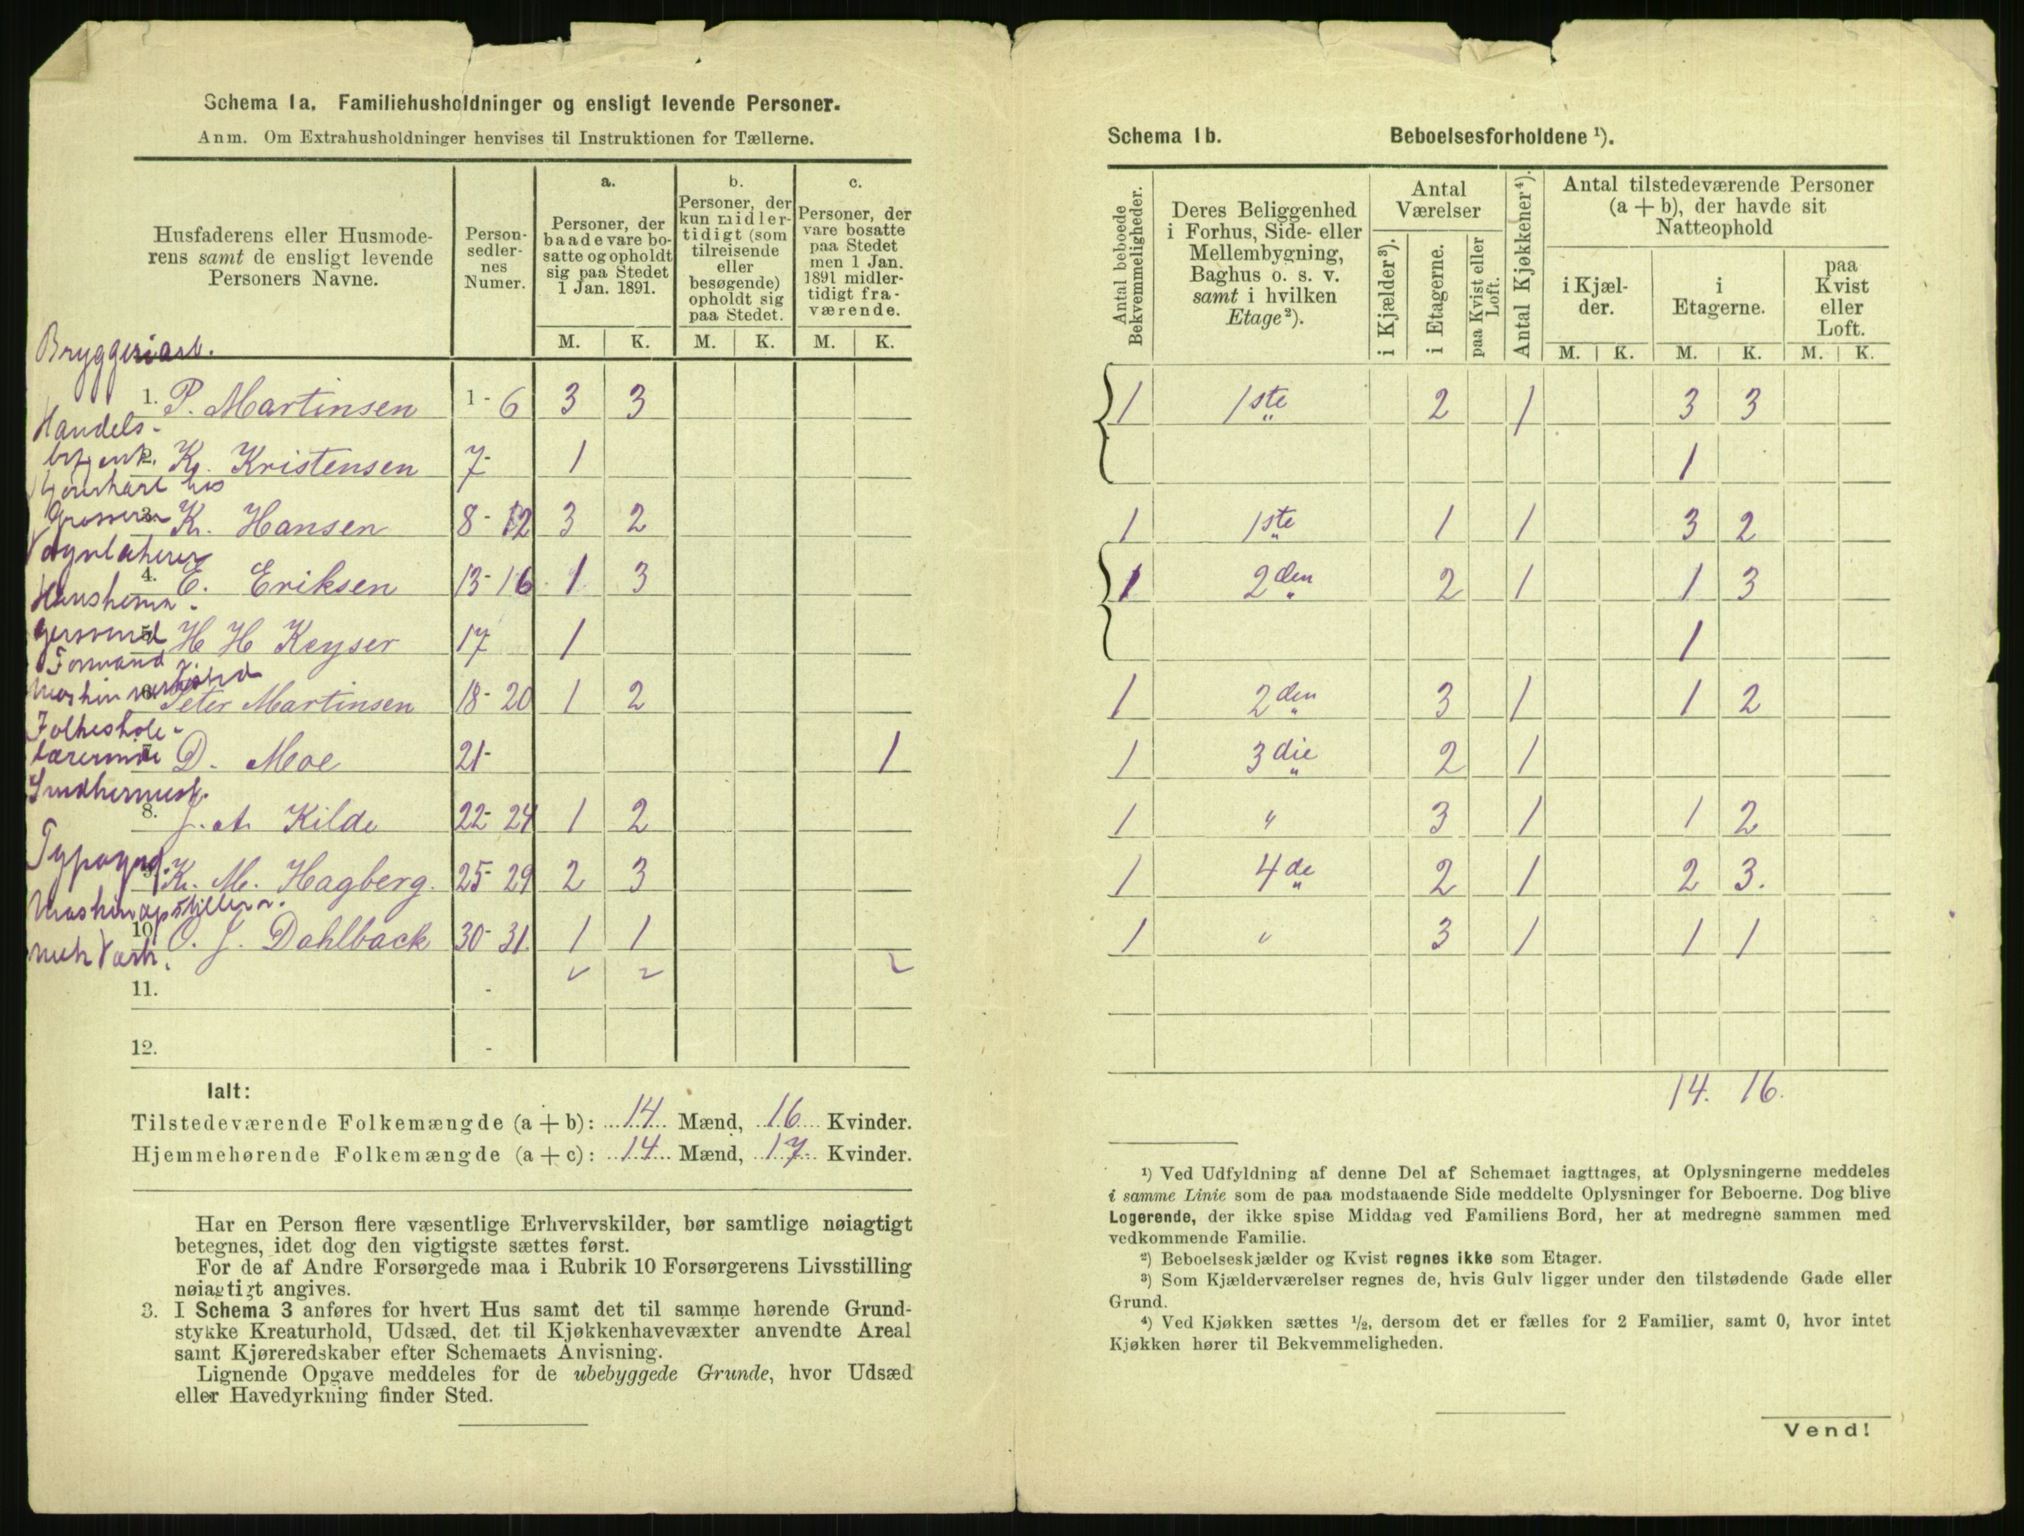 Schema 1a. Familiehusholdninger og ensligt levende Personer.
Anm. Om Extrahusholdninger henvises til Instruktionen for Tællerne.
Husfaderens eller Husmode-
rens samt de ensligt levende
Personers Navne.
Person-
sedler-
nes
Numer.
a.
Personer, der
baade vare bo-
satte og opholdt
sig paa Stedet
1 Jan. 1891.
b.
Personer, der
kun midler-
tidigt (som
tilreisende
eller
besøgende)
opholdt sig
paa Stedet.
c.
Personer, der
vare bosatte
paa Stedet
men 1 Jan.
1891 midler-
tidigt fra-
værende.
M. K. M. K. M. K.
Bryggeriarb.
1. P. Martinsen 1 - 6 3 3
Handels-
2. K. Kristensen 7- 1
3. K. Hansen 8 - 12 3 2
4. E. Eriksen 13 - 16 1 3
H H Keyser 17 1
Formand
6. Peter Martinsen 18 - 20 1 2
Folkeskole-
lærerinde
D. Moe 21- 1
8. J. A. Kilde 22 - 24 1 2
Typograf
9. K. M. Hagberg. 25 - 29 2 3
10. O. J. Dahlback 30 - 31. 1 1
11. -
12. -
Ialt:
Tilstedeværende Folkemængde (a + b): 14 Mænd, 16 Kvinder.
Hjemmehørende Folkemængde (a + c): 14 Mænd, 17 Kvinder.
Har en Person flere væsentlige Erhvervskilder, bør samtlige nøiagtigt
betegnes, idet dog den vigtigste sættes først.
For de af Andre Forsørgede maa i Rubrik 10 Forsørgerens Livsstilling
nøiagtigt angives.
3. I Schema 3 anføres for hvert Hus samt det til samme hørende Grund-
stykke Kreaturhold, Udsæd, det til Kjøkkenhavevæxter anvendte Areal
samt Kjøreredskaber efter Schemaets Anvisning.
Lignende Opgave meddeles for de ubebyggede Grunde, hvor Udsæd
eller Havedyrkning finder Sted.
Schema 1b. Beboelsesforholdene ¹).
Antal beboede
Bekvemmeligheder.
Deres Beliggenhed
i Forhus, Side- eller
Mellembygning,
Baghus o. s. v.
samt i hvilken
Etage ²).
Antal
Værelser
i Kjælder ³).
i Etagerne.
paa Kvist eller
Loft.
Antal Kjøkkener ⁴).
Antal tilstedeværende Personer
(a + b), der havde sit
Natteophold
i Kjæl-
der.
i
Etagerne.
paa
Kvist
eller
Loft.
M. K. M. K. M. K.
1 1ste 2 1 3 3
1
1 1ste 1 1 3 2
1 2den 2 1 1 3
1
1 2den 3 1 1 2
1 3die 2 1
1 " 3 1 1 2
1 4de 2 1 2 3.
1 " 3 1 1 1
14. 16.
¹) Ved Udfyldning af denne Del af Schemaet iagttages, at Oplysningerne meddeles
i samme Linie som de paa modstaaende Side meddelte Oplysninger for Beboerne. Dog blive
Logerende, der ikke spise Middag ved Familiens Bord, her at medregne sammen med
vedkommende Familie.
²) Beboelseskjælder og Kvist regnes ikke som Etager.
³) Som Kjælderværelser regnes de, hvis Gulv ligger under den tilstødende Gade eller
Grund.
⁴) Ved Kjøkken sættes ½, dersom det er fælles for 2 Familier, samt 0, hvor intet
Kjøkken hører til Bekvemmeligheden.
Vend!